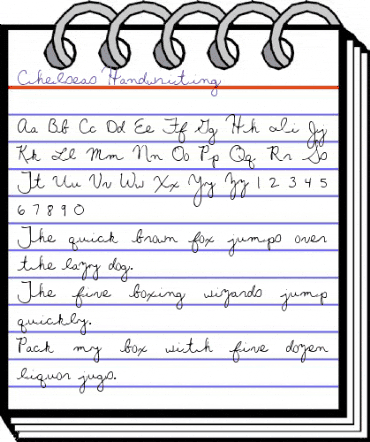 Chelseas Handwriting
Aa Bb Cc Dd Ee Ff Gg Hh Ii Jj
Kk Ll Mm Nn Oo Pp Qq Rr Ss
Tt Uu Vv Ww Xx Yy Zz 1 2 3 4 5
6 7 8 9 0
The quick brown fox jumps over
the lazy dog.
The five boxing wizards jump
quickly.
Pack my box with five dozen
liquor jugs.